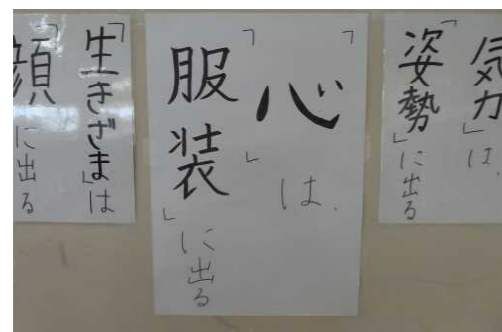 気力」は、
「姿勢」に出る
「心」は、
「服装」に出る
「生きざま」は
「顔」に出る